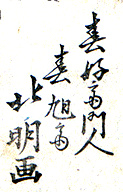 春好斎門人
春旭斎
北明画